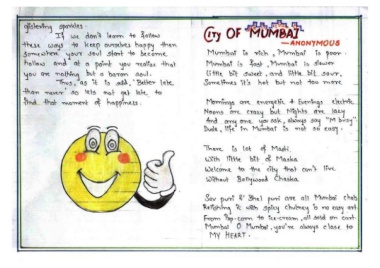 glistering sparkles.
If we don't learn to follow
these ways to keep ourselves happy then
somewhere your soul start to become
hollow and at a point you realise that
you are nothing but a barren soul.
Thus, as it is said, "Better late
than never" so lets not get late to
find that moment of happiness.
CITY OF MUMBAI
—ANONYMOUS
Mumbai is rich, Mumbai is poor.
Mumbai is fast, Mumbai is slower
Little bit sweet, and little bit sour,
Sometimes it's hot but not too more
Mornings are energetic & Evenings electric
Noons are crazy but Nights are lazy
And any one you ask, always say "M busy"
Dude, life in Mumbai is not so easy.
There is lot of Masti
With little bit of Maska
Welcome to the city that can't live
Without Bollywood Chaska
Sev puri & Bhel puri are all Mumbai chats
Relishing it with spicy chutney is no easy art
From Pop-corn to ice-cream, all sold on cart
Mumbai O Mumbai, you're always close to
MY HEART.